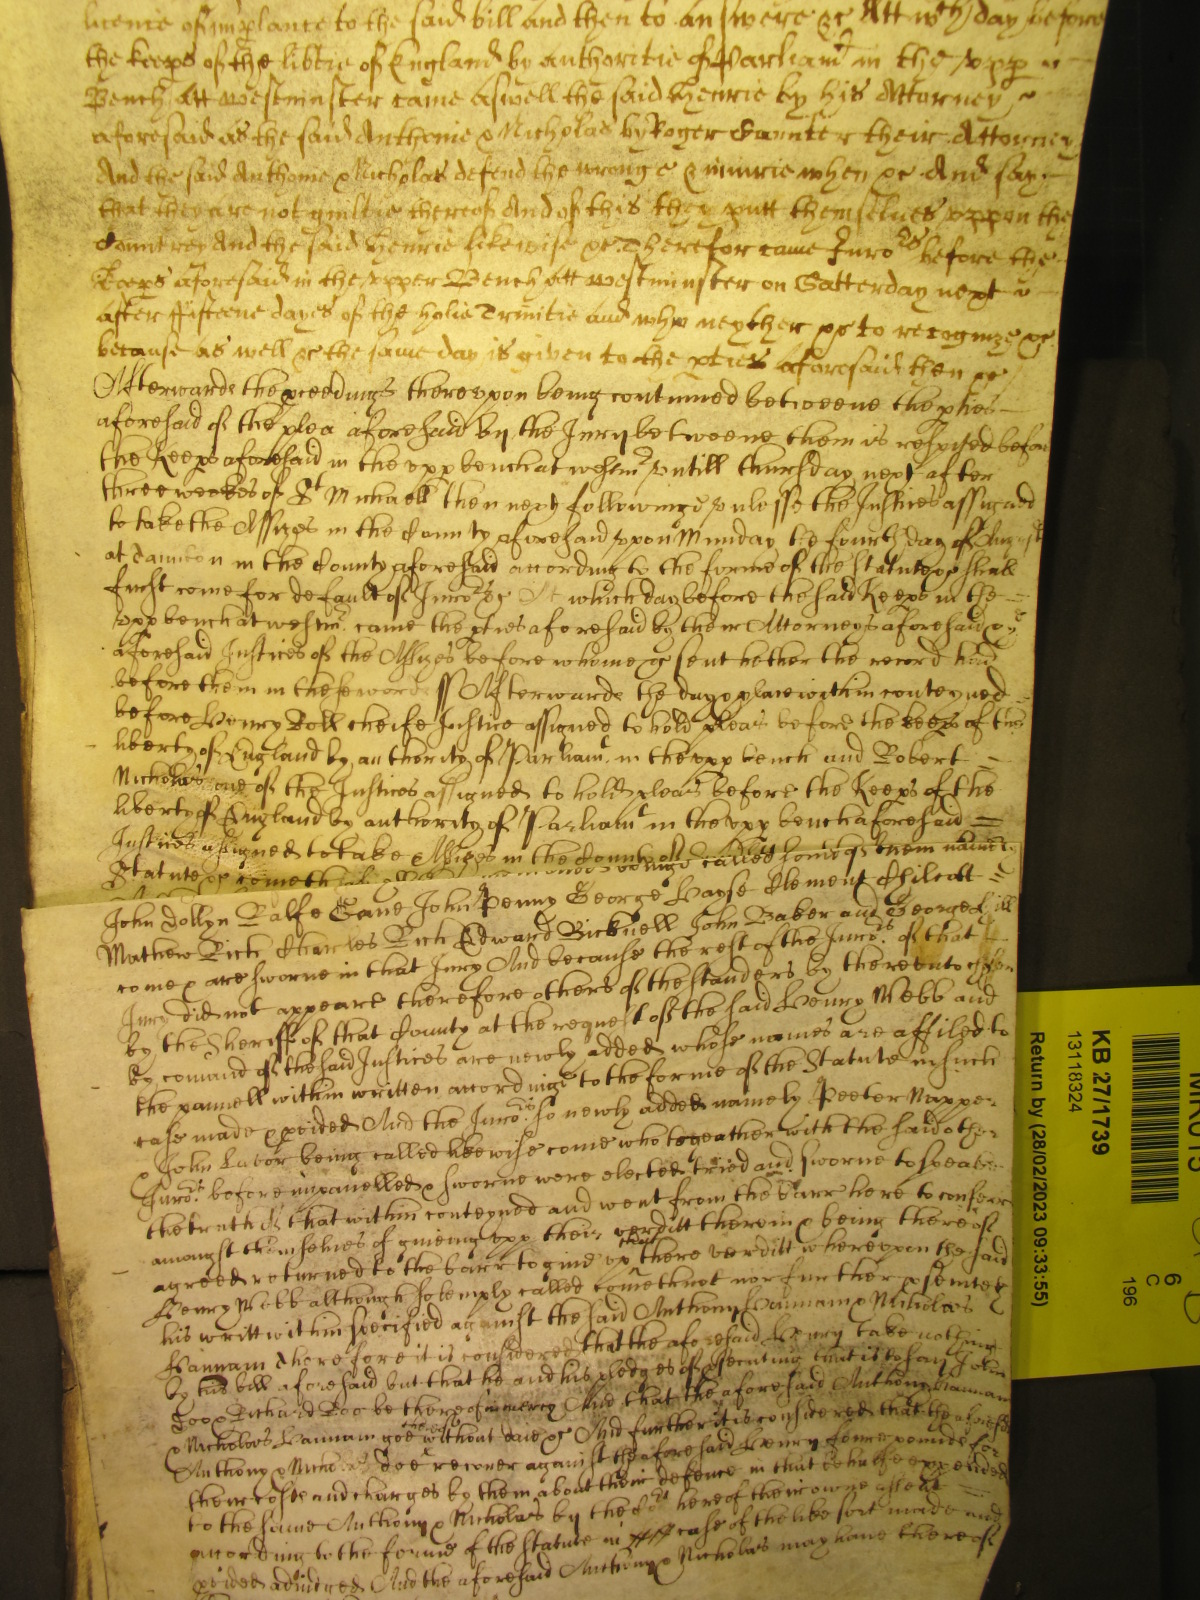 licence of imp̲lance to the said bill and then to answere &c Att wch day before
the keeps of the lib̃tie of England by authoritie of Parliamt in the upp
Bench att westminster came aswell the said Henrie by his Attorney
aforesaid as the said Anthonie & Nicholas by Roger their Attorney
And the said Anthonie & Nicholas defend the wronge & iniurie when &c And say
that they are not guiltie thereof And of this they putt themselues vppon the
Countrey And the said Henrie likewise &c Therefor came Juroes before the
keeps aforesaid in the vpper Bench att westminster on Satterday next
after fifteene dayes of the holie Trinitie and who neyther &c to recognize &c
because as well &c the same day is given to the pties aforesaid then &c
Afterwards the pceedings therevpon being continued betweene the pties
aforesaid of the plea aforesaid by the Jury betweene them is respited before
the Keeps aforesaid in the vpp bench at westmr vntill thursday next after
three weekes of St Michaell then next followinge vnlesse the Justices assigned
to take the Assizes in the County aforesaid vpon Munday the fourth day of August
at Taunton in the County aforesaid according to the forme of the statute &c shall
first come for default of Juroes &c At which day before the said Keeps in the
vpp bench at westmr came the pties aforesaid by their Attorneys aforesaid &
aforesaid Justices of the Assizes before whome &c sent hether the record had
before them in these words ss Afterwards the day & place within conteyned
before Henry Roll cheife Justice assigned to hold pleas before the keeps of the
liberty of England by authority of Parliamt in the vpp bench and Robert
Nicholas one of the Justices assigned to hold pleas before the Keeps of the
liberty of England by authority of Parliamt in the vpp bench aforesaid
Justices assigned to take Assizes in the County
Statute &c cometh called some of them namely
John Dollyn Ralfe Gane John Penny George Hayse Clement Chilcott
Mathew Rich Charles Rich Edward Bicknell John Baker and George Hill
come & are sworne in that Jury And because the rest of the Juroes of that
Jury did not appeare therefore others of the standers by therevnto chosen
by the Sheriff of that County at the request of the said Henry Webb and
by comand of the said Justices are newly added whose names are affiled to
the pannell within written accordinge to the forme of the Statute in such
case made & pvided And the Juroes so newly added namely Peeter Napper
& John being called likewise come who togeather with the said other
Juroes before impanelled & sworne were elected tried and sworne to speake
the truth of that within conteyned and went from the barr here to conferr
amongst themselues of giueing vpp their verditt therein & being thereof
agreed returned to the barr to giue vp there verditt wherevpon the said
Henry Webb although solemply called cometh not nor further psenteth
his writt within specified against the said Anthony Hannam & Nicholas
Hannam Therefore it is considered that the aforesaid Henry take nothing
by his bill aforesaid but that he and his pledges of psecuting that is to say John
Doo & Richard Roo be thereof in mercy And that the aforesaid Anthony Hannam
& Nicholas Hannam goe thereof without daie &c And further it is considered that the aforesaid
Anthony & Nicholas doe recouer against the aforesaid Henry foure pounds for
their costs and charges by them about their defence in that behalfe expended
to the same Anthony & Nicholas by the Cort here of their owne assent
according to the forme of the statute in case of the like sort made and
pvided adiudged And the aforesaid Anthony & Nicholas may haue thereof
KB 27/1739
13118324
Return by (28/02/2023 09:33:55)
6
C
196